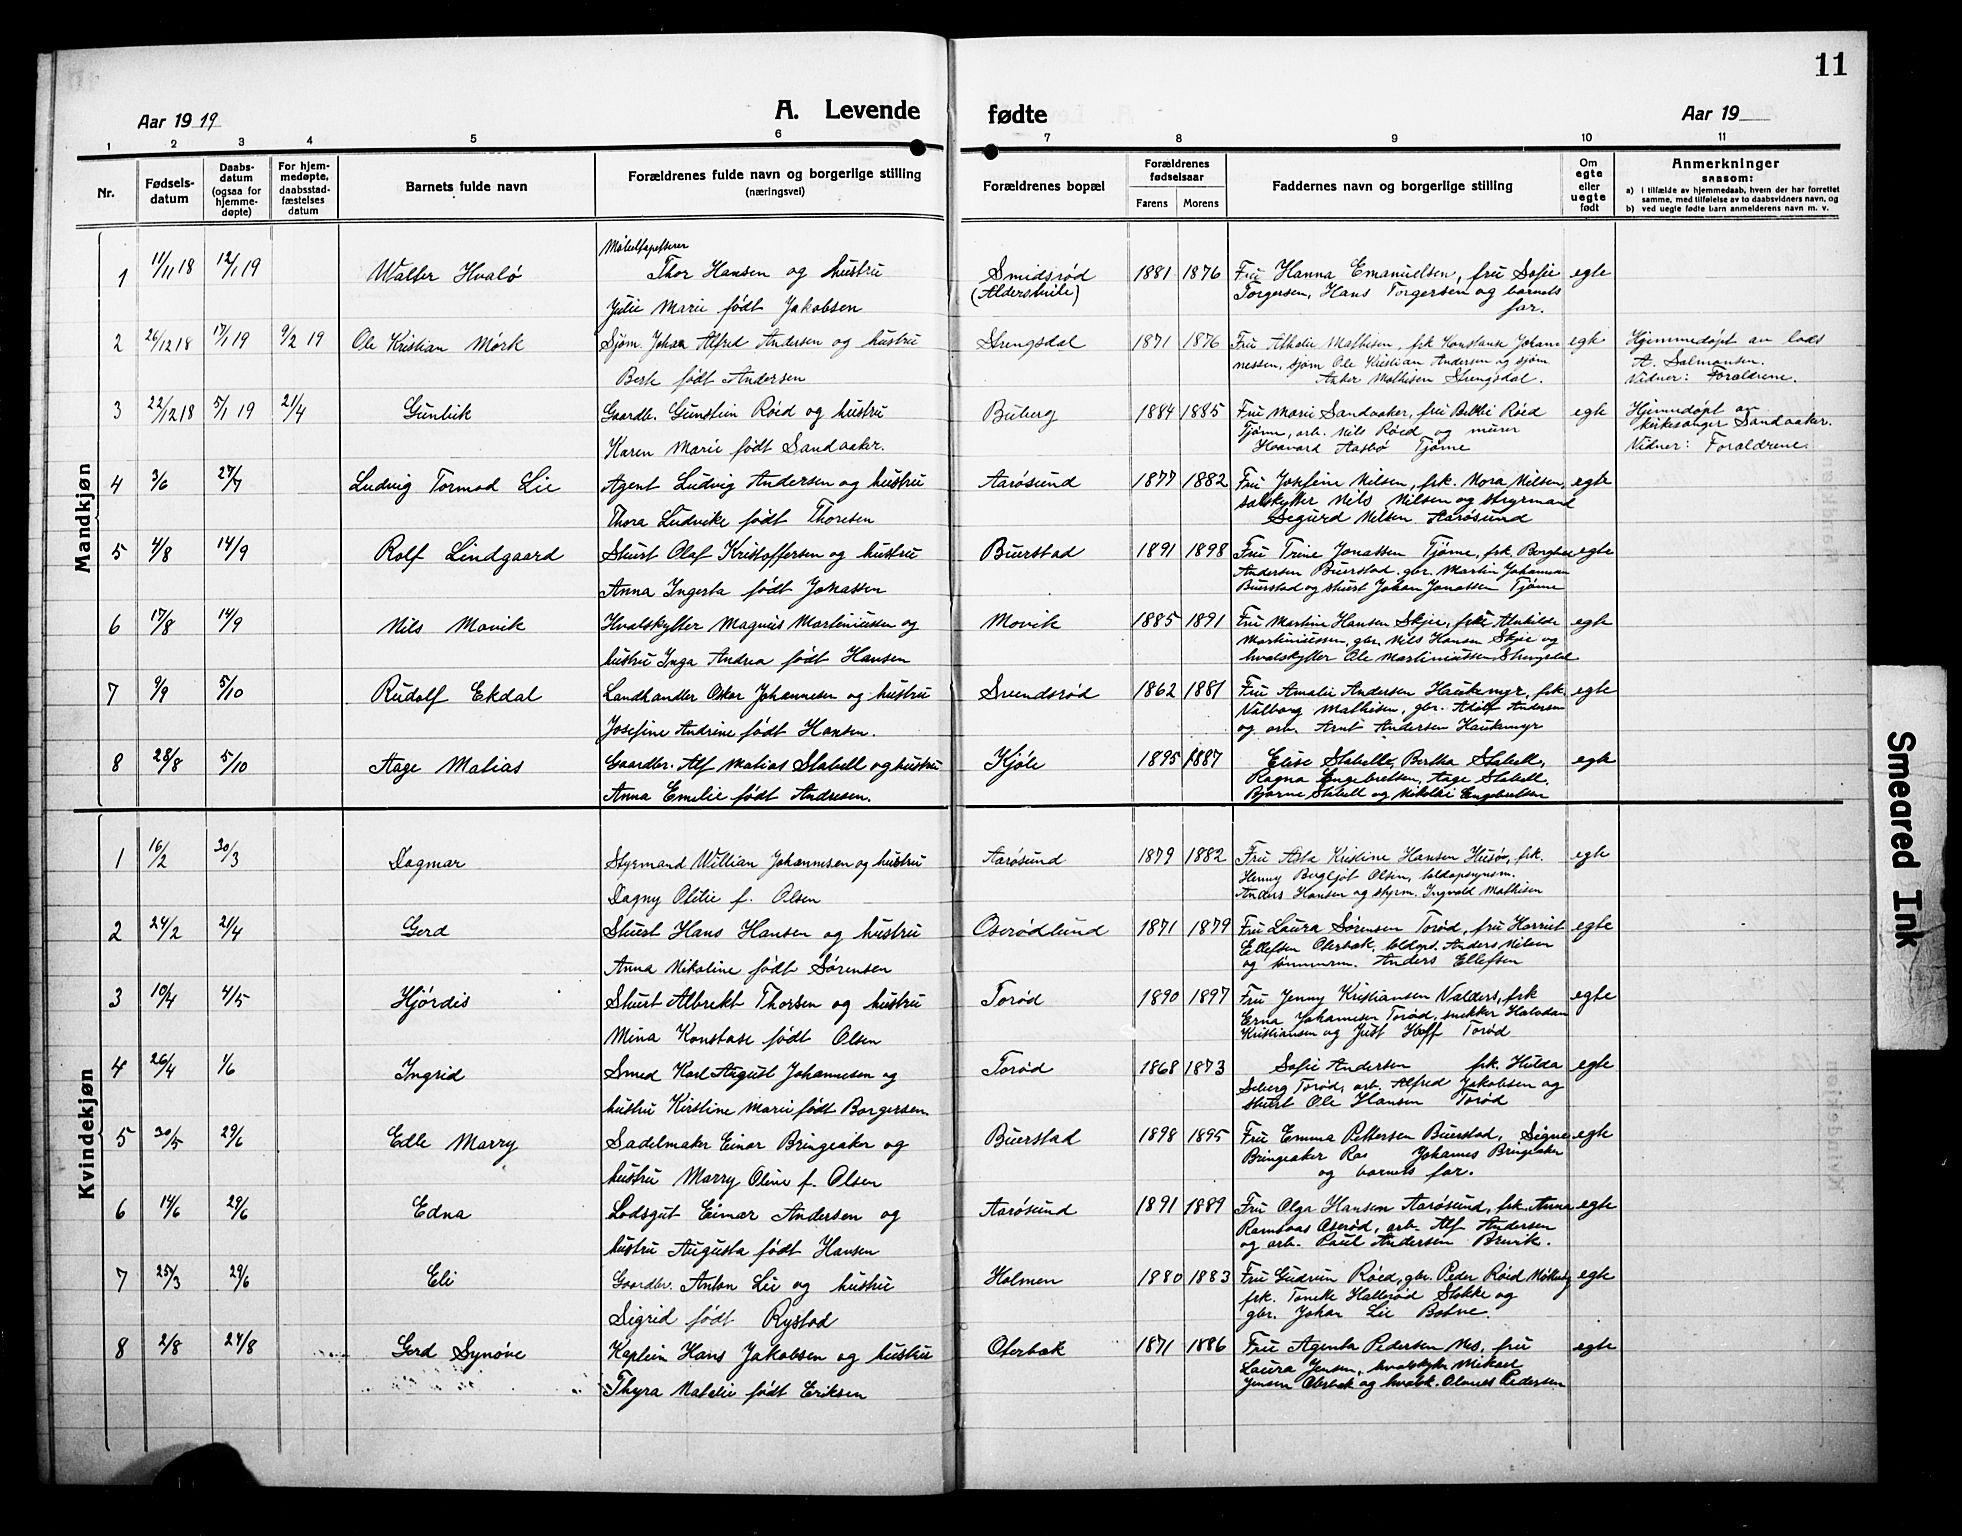 11
Aar 1919
A. Levende
fødte
Aar 19
1 2 3 4 5 6 7 8 9 10 11
Nr.
Fødsels-
datum
Daabs-
datum
(ogsaa for
hjemme-
døpte)
For hjem-
medøpte,
daabsstad-
fæstelses
datum
Barnets fulde navn
Forældrenes fulde navn og borgerlige stilling
(næringsvei)
Forældrenes bopæl
Forældrenes
fødselsaar
Farens Morens
Faddernes navn og borgerlige stilling
Om
egte
eller
uegte
født
Anmerkninger
saasom:
a) i tilfælde av hjemmedaab, hvem der har forrettet
samme, med tilføielse av to daabsvidners navn, og
b) ved uegte fødte barn anmelderens navn m. v.
Mandkjøn
1 11/11 18 12/1 19 Walter Hvalø
Møbeltapetserer
Thor Hansen og hustru
Julie Marie født Jakobsen
Smidsrød
1881 1876
Fru Hanna Emanuelsen, fru Sofie
Torgersen, Hans Torgersen og barnets
far.
egte
2 26/12 18 17/1 19 9/2 19 Ole Kristian Mørk
Sjøm. Johan Alfred Andersen og hustru
Berte født Andersen
Strengsdal
1871 1876
Fru Athalie Mathisen, frk Konstanse Johan-
nessen, sjøm Ole Kristian Andersen og sjøm
Anker Mathisen Strengsdal.
egte
Hjemmedøpt av lods
A. Salmonsen.
Vidner: Forældrene.
3 22/12 18 5/1 19 21/4 Gunleik
Gaardbr. Gunstein Røed og hustru
Karen Marie født Sandaaker.
Buberg
1884 1885
Fru Marie Sandaaker, fru Røed
Tjøme, arb. Nils Røed og murer
Haavard Aasbø Tjøme
egte
Hjemmedøpt av
kirkesanger Sandaaker.
Vidner: Forældrene.
4 3/6 27/7 Ludvig Tormod Lie
Agent Ludvig Andersen og hustru
Thora Ludvikke født Thoresen
Aarøsund
1877 1882
Fru Josefine Nilsen, frk. Nora Nilsen,
sælskytter Nils Nilsen og styrmand
Sigurd Nilsen Aarøsund
egte
5 4/8 14/9 Rolf Lindgaard
Stuert Olaf Kristoffersen og hustru
Anna Ingerta født Jonassen
Buerstad
1891 1898
Fru Trine Jonassen Tjøme, frk. Borghild
Andersen Buerstad, gbr. Martin Johannesen
Buerstad og stuert Johan Jonassen Tjøme
egte
6 17/8 14/9 Nils Movik
Hvalskytter Magnus Martiniussen og
hustru Inga Andrea født Hansen
Movik
1885 1891
Fru Martine Hansen Skjie, frk. Alvilde
Martiniussen, gbr. Nils Hansen Skjie og
hvalskytter Ole Martiniussen Strengsdal
egte
7 9/9 5/10 Rudolf Ekdal
Landhandler Oskar Johannesen og hustru
Josefine Andrine født Hansen.
Svendsrød
1862 1881
Fru Amalie Andersen Haukemyr, frk.
Valborg Mathisen, gbr. Adolf Andersen
og arb. Arnt Andersen Haukemyr
egte
8 28/8 5/10 Aage Matias
Gaardbr. Alf Matias Stabell og hustru
Anna Emilie født Andresen.
Kjøle
1895 1887
Elise Stabell, Bertha Stabell,
Ragna Engebretsen, Aage Stabell,
Bjarne Stabell og Nikolai Engebretsen
egte
Kvindekjøn
1 16/2 30/3 Dagmar
Styrmand Willian Johannesen og hustru
Dagny Otilie f. Olsen
Aarøsund
1879 1882
Fru Asta Kristine Hansen Husøy, frk.
Henny Bergljot Olsen, toldopsynsm.
Anders Hansen og styrm. Ingvald Mathisen
egte
2 24/2 21/4 Gerd
Stuert Hans Hansen og hustru
Anna Nikoline født Sørensen
Oserødlund
1871 1879
Fru Laura Sørensen Torød, fru Harriet
Ellefsen Oterbæk, toldopt. Anders Nilsen
og tømmerm. Anders Ellefsen
egte
3 10/4 4/5 Hjørdis
Stuert Albrekt Thorsen og hustru
Mina Konstase født Olsen
Torød
1890 1897
Fru Jenny Kristiansen Valders, frk
Erna Johannesen Torød, snekker Halvdan
Kristiansen og Just Hoff Torød
egte
4 26/4 1/6 Ingrid
Smed Karl August Johannesen og
hustru Kirstine Marie født Borgersen
Torød
1868 1873
Sofie Andersen frk. Hulda
Seberg Torød, arb. Alfred Jakobsen og
stuert Ole Hansen Torød
egte
5 30/5 29/6 Edle Marry
Sadelmaker Einar Bringeaker og
hustru Marry Oline f. Olsen
Buerstad
1898 1895
Fru Emma Pettersen Buerstad, Signe
Bringeaker Ras Johannes Bringeaker
og barnets far.
egte
6 14/6 29/6 Edna
Lodsgut Einar Andersen og
hustru Augusta født Hansen
Aarøsund
1891 1889
Fru Olga Hansen Aarøsund, frk. Anna
Ramsaas Oserød, arb. Alf Andersen
og arb. Paul Andersen Bruvik.
egte
7 25/3 29/6 Eli
Gaardbr. Anton Lie og hustru
Sigrid født Rystad
Holmen
1880 1883
Fru Gudrun Røed, gbr. Peder Røed
frk. Tomette Hallerød Stokke og
gbr. Johan Lie
egte
8 2/8 24/8 Gerd Synøve
Kaptein Hans Jakobsen og hustru
Thyra Natalie født Eriksen
Oterbæk
1871 1886
Fru Agenta Pedersen Nes, fru
Laura Jensen, hvalskytter Mikael
Jensen Oterbæk og hvalsk. Pedersen
egte
Smeared Ink